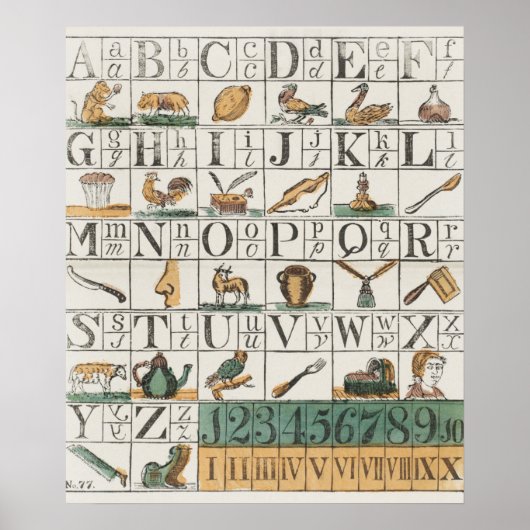 A a a B b b C c c D d d E e e F f f
G g g H h h I i i J j j K k k L l l
M m m N n n O o o P p p Q q q R r r
S s s T t t U u u V v v W w w X x x
Y y y Z z z 1 2 3 4 5 6 7 8 9 10
I II III IV V VI VII VIII IX X
No. 77.